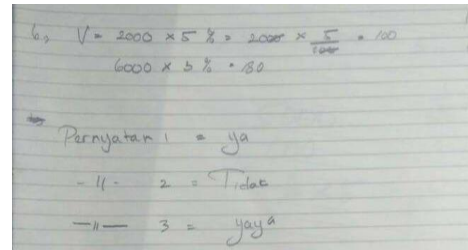 6, V = 2000 × 5 % = 2000 × 5/100 = 100
6000 × 3 % = 180
Pernyatan 1 = ya
-11- 2 = Tidak
—11— 3 = yaya